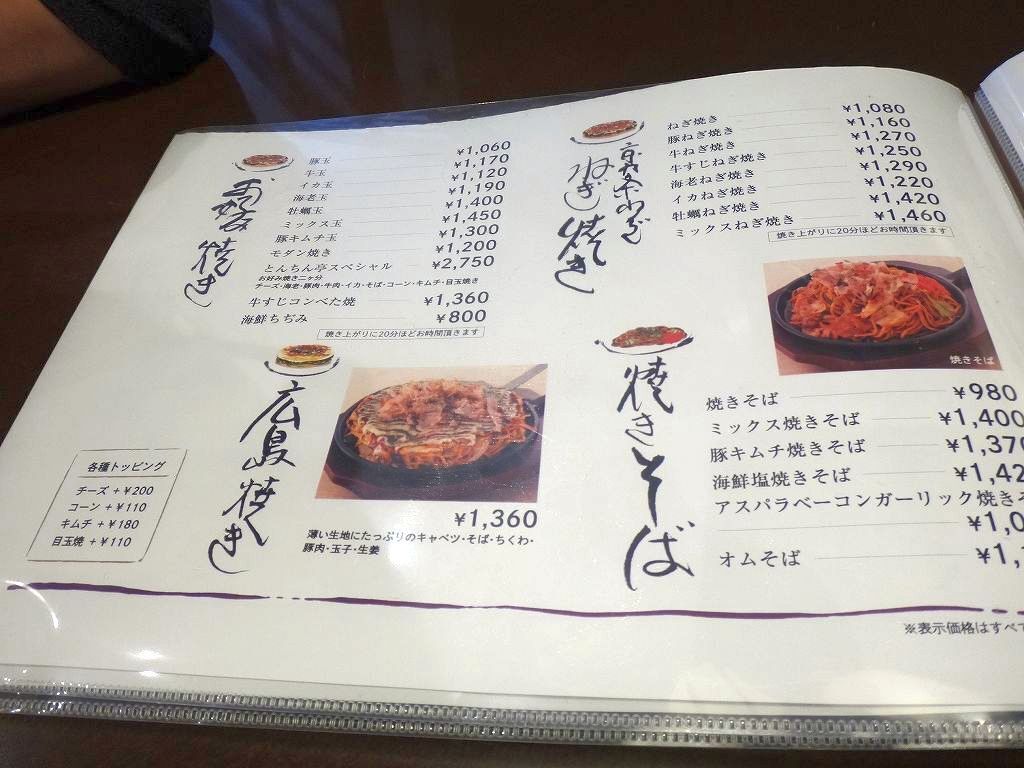 お好み焼き
豚玉 ¥1,060
牛玉 ¥1,170
イカ玉 ¥1,120
海老玉 ¥1,190
牡蠣玉 ¥1,400
ミックス玉 ¥1,450
豚キムチ玉 ¥1,300
モダン焼き ¥1,200
とんちん亭スペシャル ¥2,750
お好み焼き二ヶ分
チーズ・海老・豚肉・牛肉・イカ・そば・コーン・キムチ・目玉焼き
牛すじコンべた焼 ¥1,360
海鮮ちぢみ ¥800
焼き上がりに20分ほどお時間頂きます
広島焼き
¥1,360
薄い生地にたっぷりのキャベツ・そば・ちくわ・
豚肉・玉子・生姜
各種トッピング
チーズ +¥200
コーン +¥110
キムチ +¥180
目玉焼 +¥110
ねぎ焼き
ねぎ焼き ¥1,080
豚ねぎ焼き ¥1,160
牛ねぎ焼き ¥1,270
牛すじねぎ焼き ¥1,250
海老ねぎ焼き ¥1,290
イカねぎ焼き ¥1,220
牡蠣ねぎ焼き ¥1,420
ミックスねぎ焼き ¥1,460
焼き上がりに20分ほどお時間頂きます
焼きそば
焼きそば
焼きそば ¥980
ミックス焼きそば ¥1,400
豚キムチ焼きそば ¥1,370
海鮮塩焼きそば ¥1,42
アスパラベーコンガーリック焼きそ
¥1,0
オムそば ¥1,
※表示価格はすべて